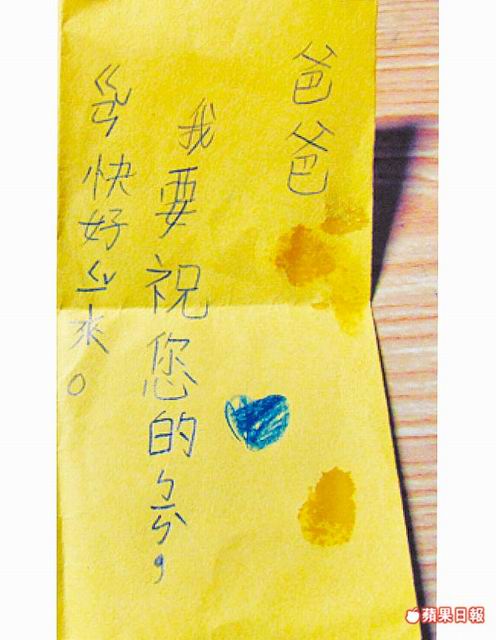 爸爸
我要祝您的ㄅㄧㄥˋ，
ㄍㄢˇ快好ㄑㄧˇ來。
蘋果日報